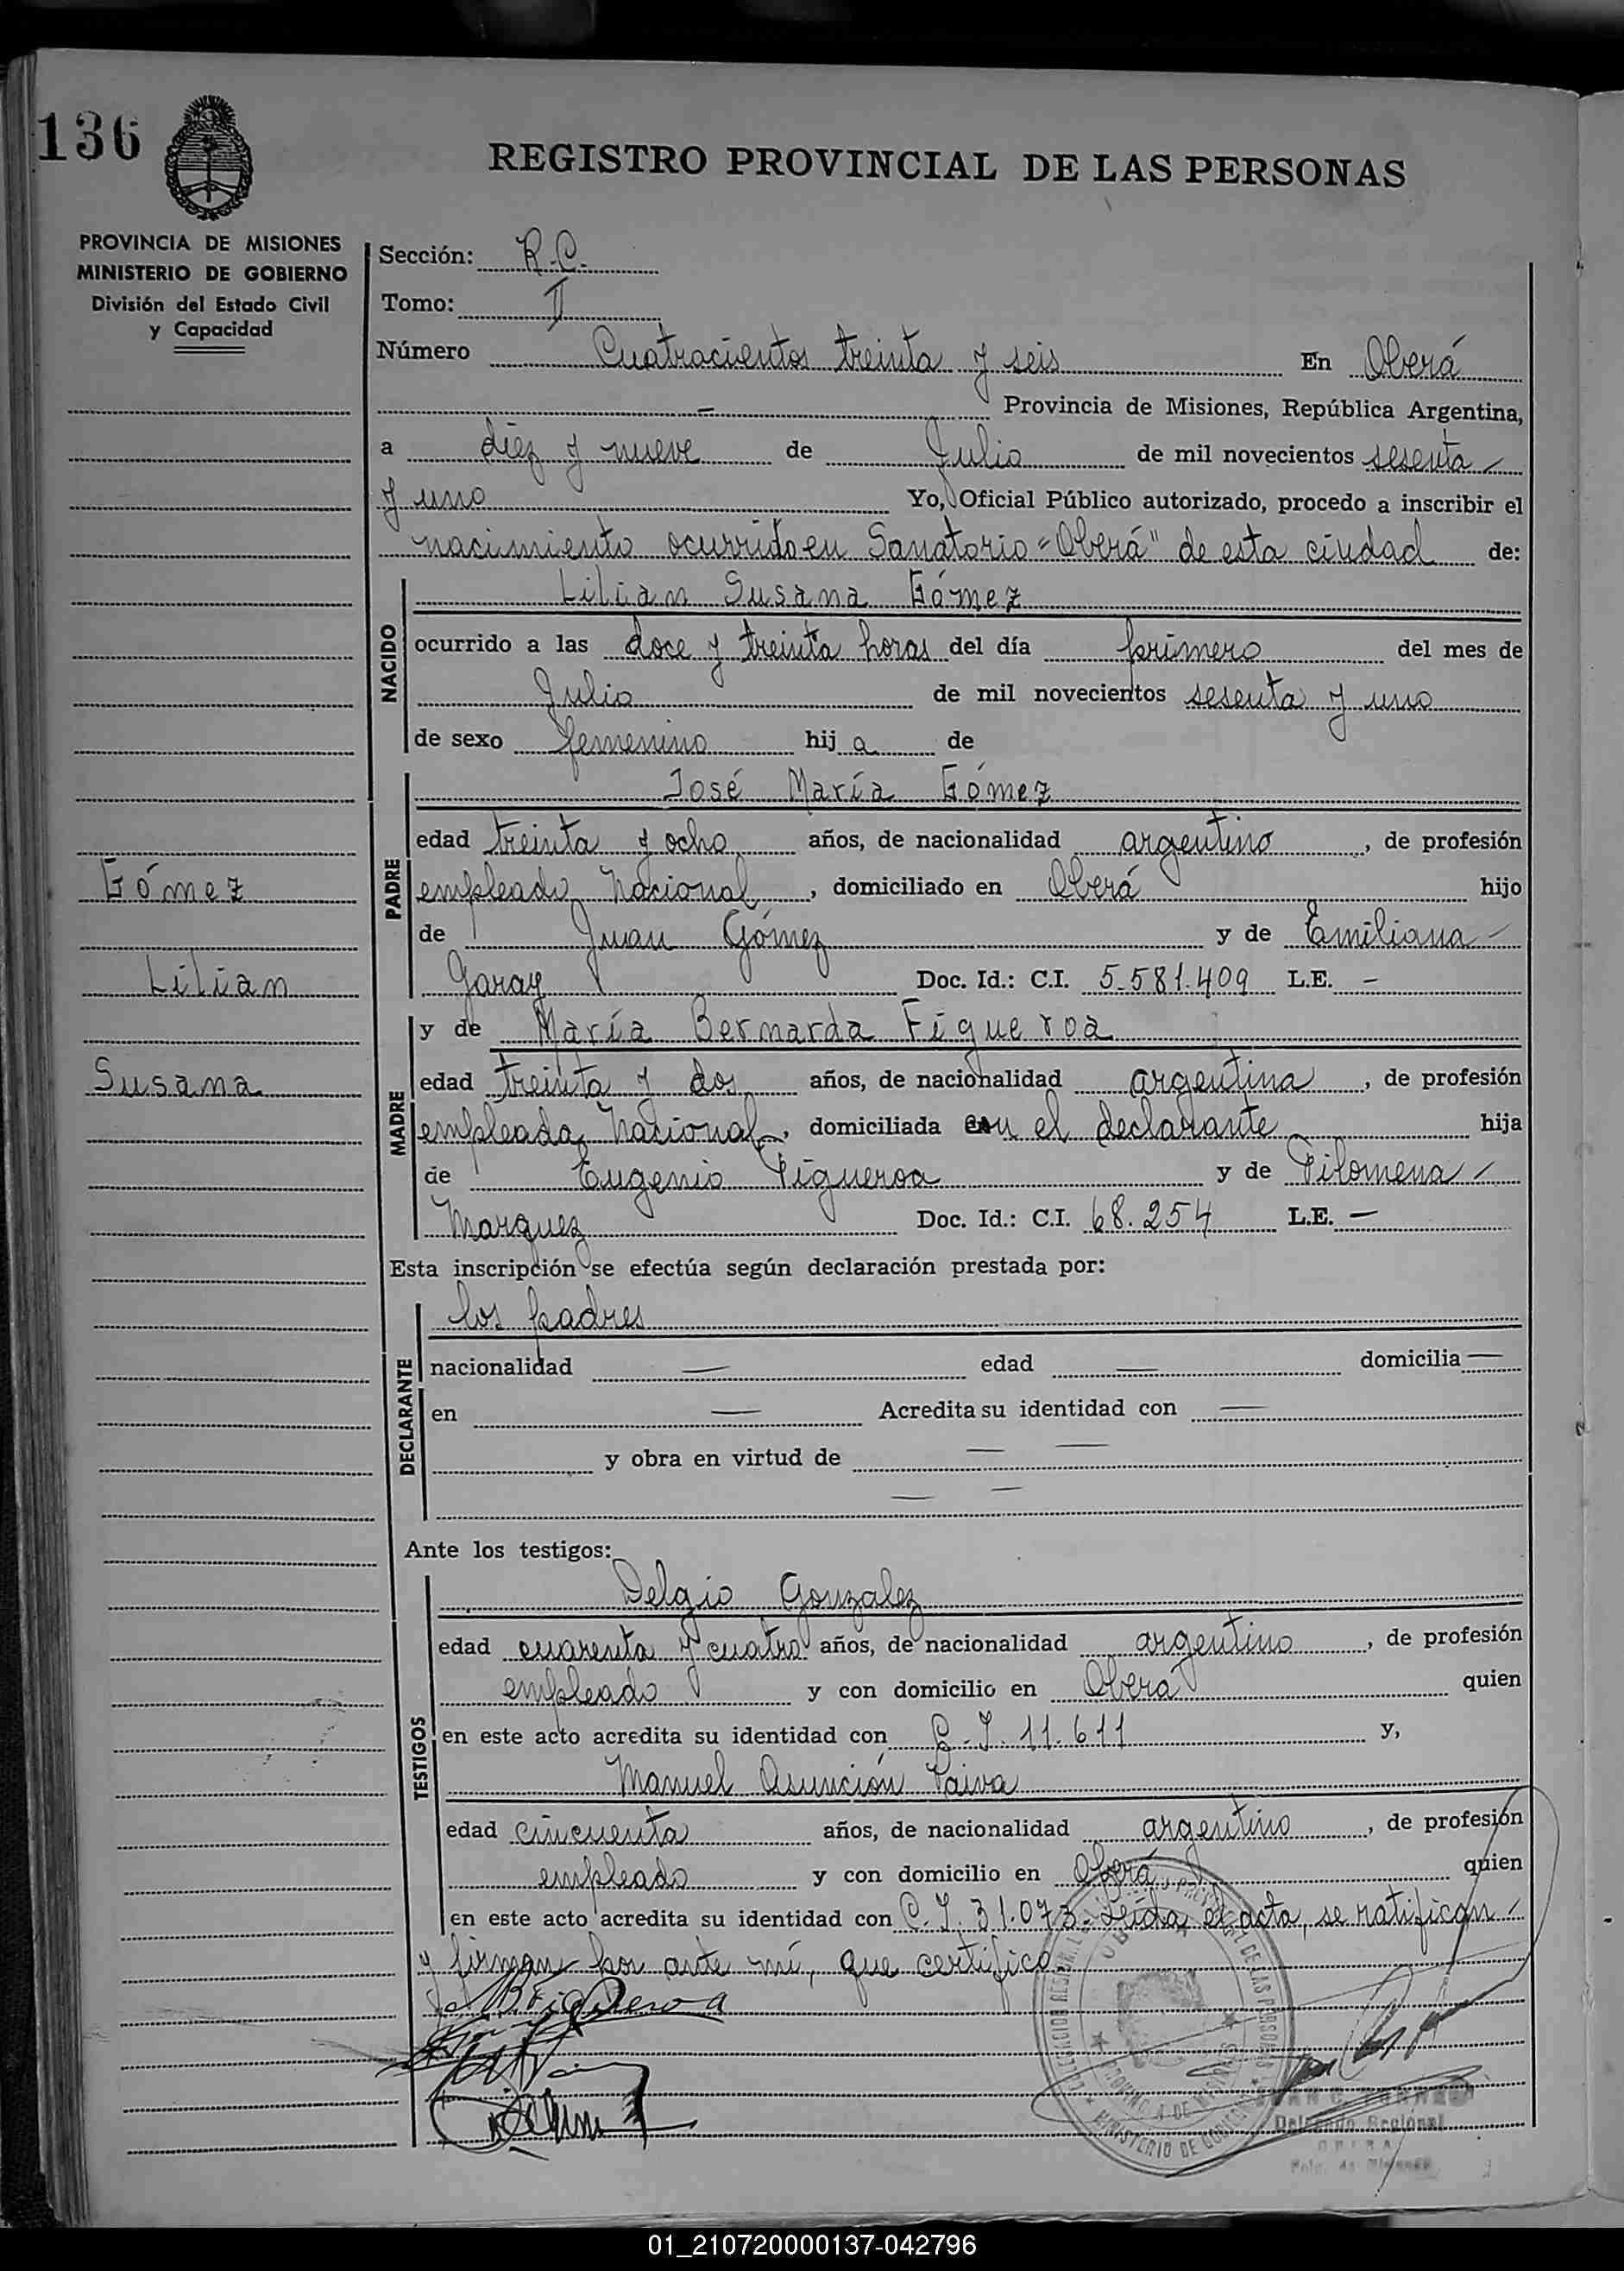 136
REGISTRO PROVINCIAL DE LAS PERSONAS
PROVINCIA DE MISIONES
MINISTERIO DE GOBIERNO
División del Estado Civil
y Capacidad
Sección: R.C.
Tomo: II
Número Cuatrocientos treinta y seis En Oberá
Provincia de Misiones, República Argentina,
a diez y nueve de Julio de mil novecientos sesenta
y uno Yo, Oficial Público autorizado, procedo a inscribir el
nacimiento ocurrido en Sanatorio "Oberá" de esta ciudad de:
NACIDO
Lilian Susana Gómez
ocurrido a las doce y treinta horas del día primero del mes de
Julio de mil novecientos sesenta y uno
de sexo femenino hija de
PADRE
José María Gómez
edad treinta y ocho años, de nacionalidad argentino, de profesión
empleado Nacional, domiciliado en Oberá hijo
de Juan Gómez y de Emiliana
Garay Doc. Id.: C.I. 5.581.409 L.E. —
Gómez
Lilian
Susana
MADRE
y de María Bernarda Figueroa
edad treinta y dos años, de nacionalidad argentina, de profesión
empleada Nacional, domiciliada con el declarante hija
de Eugenio Figueroa y de Filomena
Marquez Doc. Id.: C.I. 68.254 L.E. —
Esta inscripción se efectúa según declaración prestada por:
DECLARANTE
los padres
nacionalidad — edad — domicilia —
en — Acredita su identidad con —
y obra en virtud de — —
— —
Ante los testigos:
TESTIGOS
Delgio Gonzalez
edad cuarenta y cuatro años, de nacionalidad argentino, de profesión
empleado y con domicilio en Oberá quien
en este acto acredita su identidad con C.I. 11.611 y,
Manuel Asunción Paiva
edad cincuenta años, de nacionalidad argentino, de profesión
empleado y con domicilio en Oberá quien
en este acto acredita su identidad con C.I. 31.073- Leída el acta, se ratifican
y firman por ante mí, que certifico.
Figueroa
PROVINCIA DE MISIONES
MINISTERIO DE GOBIERNO
Delegado Regional
01_210720000137-042796